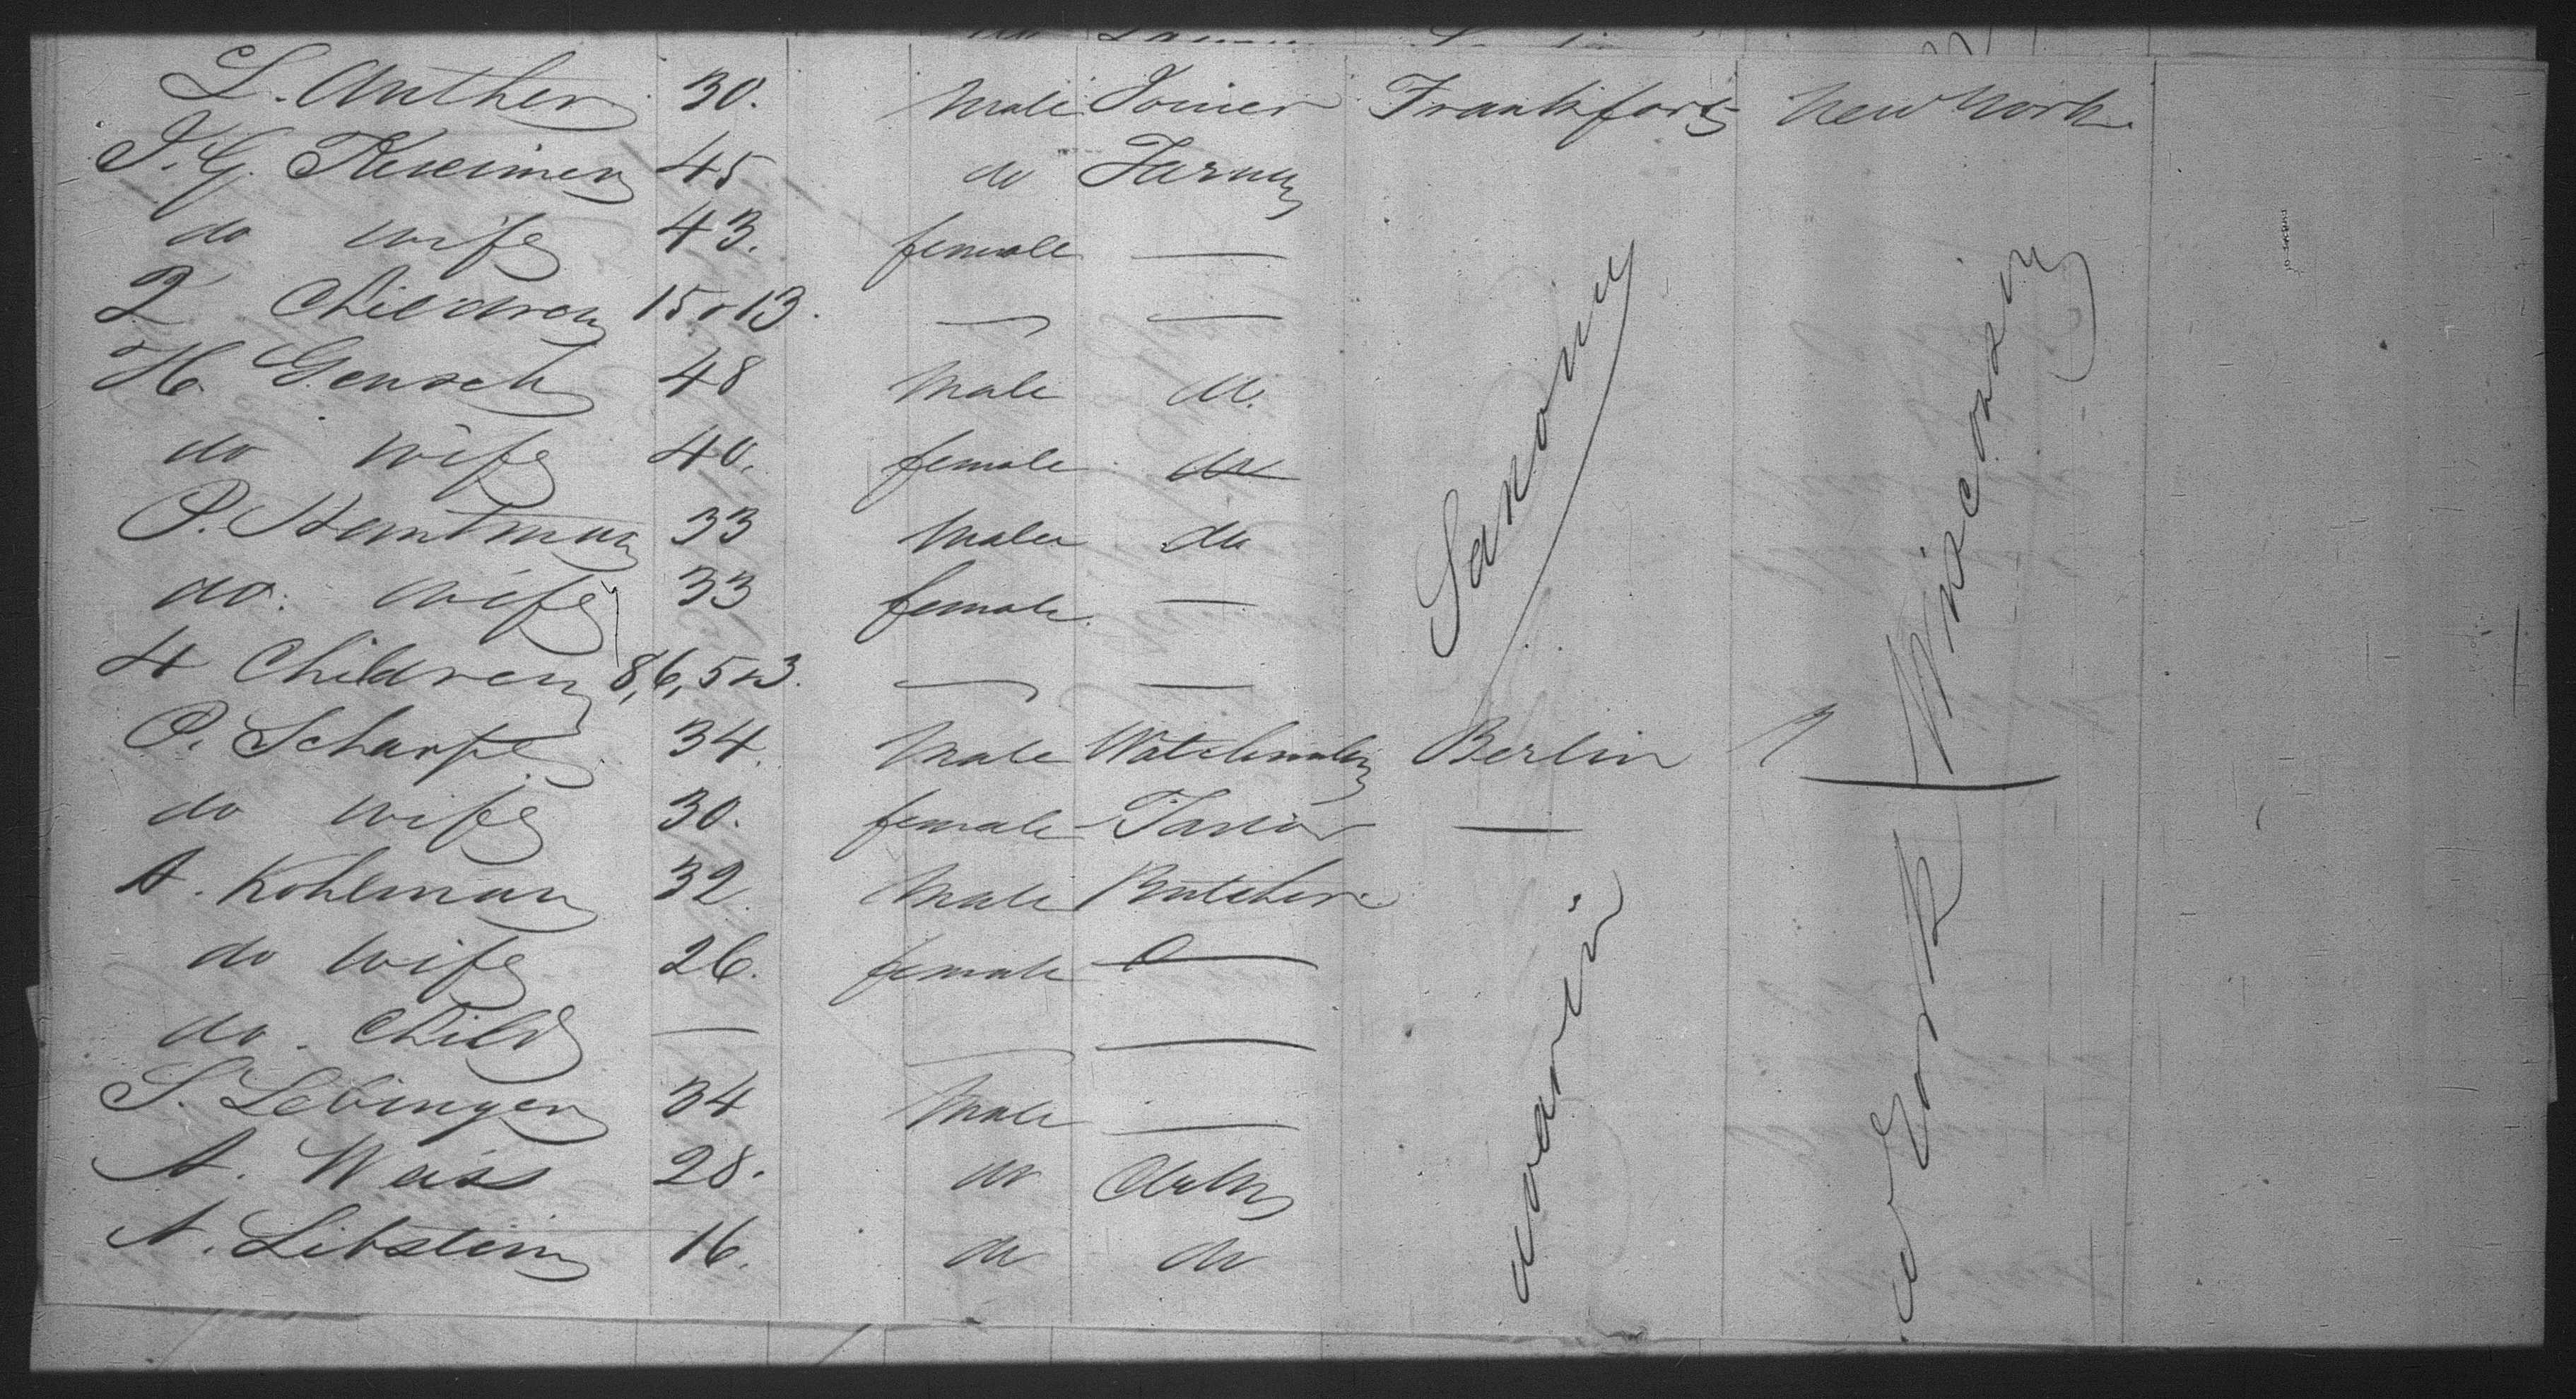 L. Anther 30. Male Joiner Frankfort New York
J. G. 45 do Farmer
do wife 43. female —
2 Children 15 & 13. — —
H. Gensch 48 Male do.
do wife 40. female do
P. Hantman 33 Male do
do. wife 33 female. —
4 Children 8, 6, 5 & 3. — —
Saxony
Wisconsin
P. Scharfe 34. Male Watchmaker Berlin
do wife 30. female Tailor —
A. Kohlman 32. Male Butcher
do wife 26. female —
do. Child — —
S. Lebinger 34 Male —
A. Weiss 28. do Clerk
A. Libstein 16. do do
York